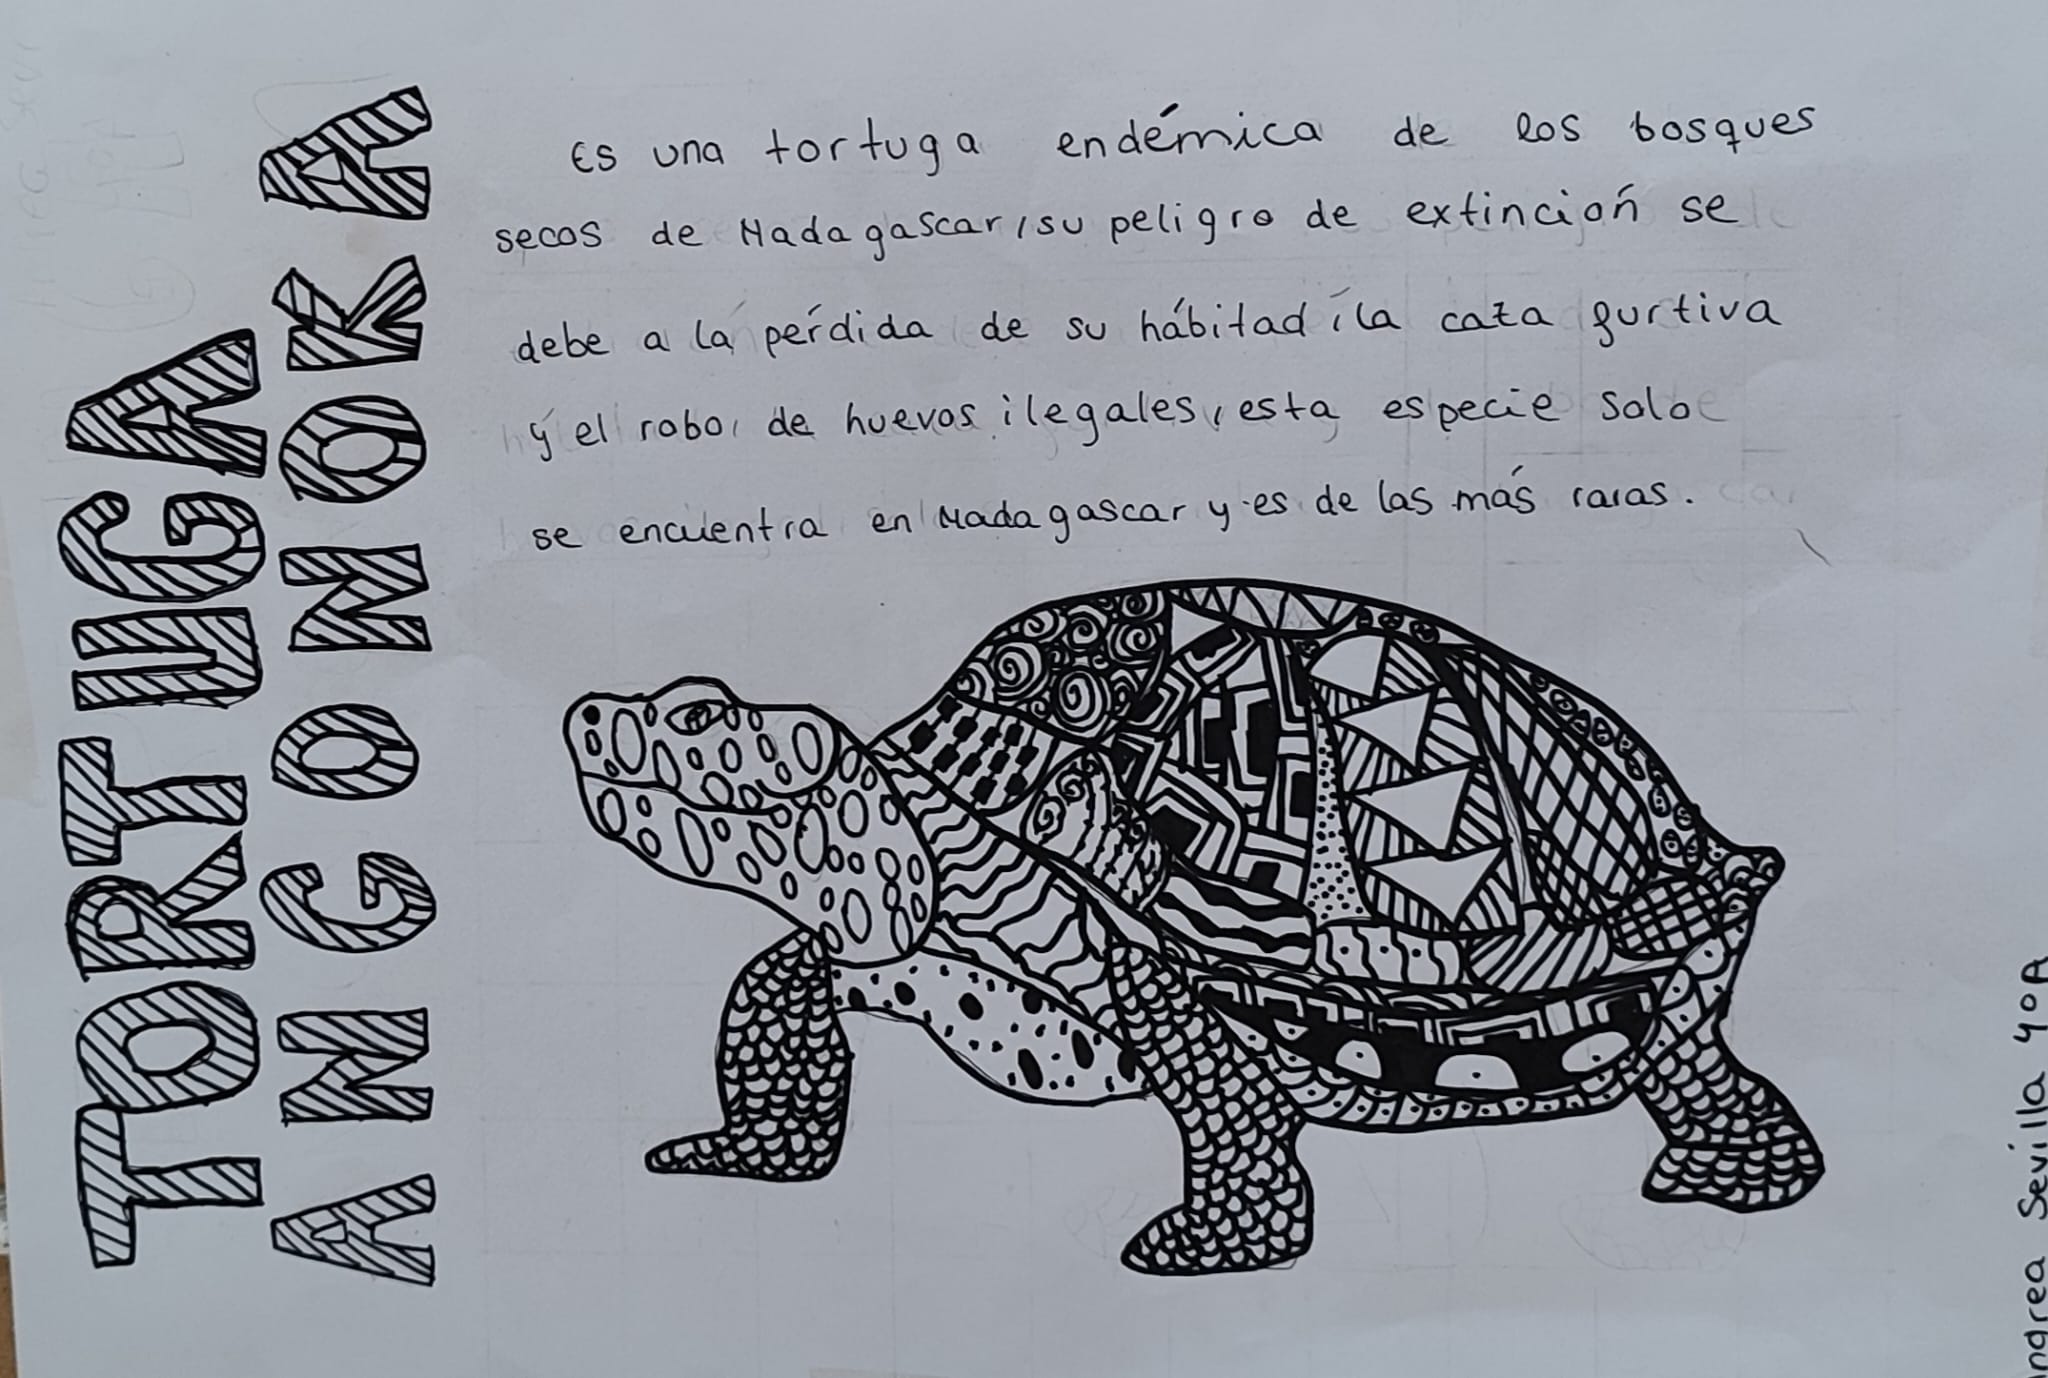 TORTUGA
ANGONOKA
Es una tortuga endémica de los bosques
secos de Madagascar, su peligro de extinción se
debe a la pérdida de su hábitad, la caza furtiva
y el robo de huevos ilegales, esta especie solo
se encuentra en Madagascar y es de las más raras.
Andrea Sevilla 4ºA